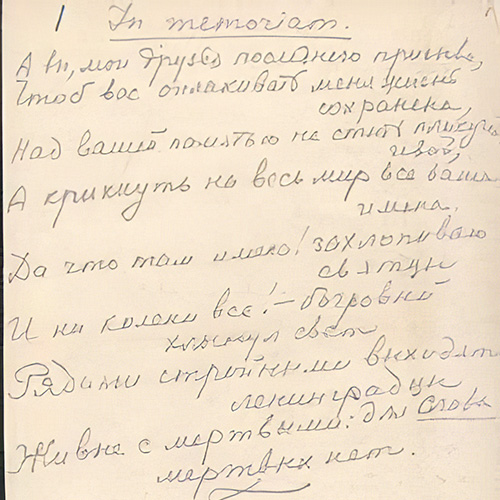 1 In memoriam.
А вы, мои друзья последнего призыва,
Чтоб вас оплакивать мне жизнь
сохранена,
Над вашей памятью не стыть плакучей
ивой,
А крикнуть на весь мир все ваши
имена.
Да что там имена! захлопываю
святцы
И на колени все! – багровый
хлынул свет
Рядами стройными выходят
ленинградцы
Живые с мертвыми: для Славы
мертвых нет.